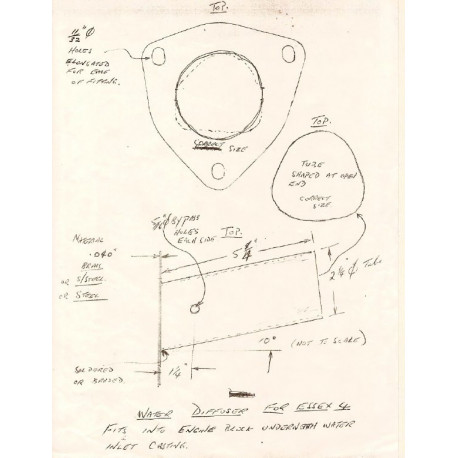 TOP.
11/32" Ø
HOLES
ELONGATED
FOR EASE
OF FIXING.
CORRECT SIZE
TOP.
TUBE
SHAPED AT OPEN
END
CORRECT
SIZE
Ø BYPASS
HOLES
EACH SIDE
TOP.
MATERIAL
.040"
BRASS
OR S/STEEL
OR STEEL
2 1/4" Ø TUBE
10°
(NOT TO SCALE)
1 1/4"
SOLDERED
OR BRAZED.
WATER DIFFUSER FOR ESSEX 4
FITS INTO ENGINE BLOCK UNDERNEATH WATER
INLET CASTING.